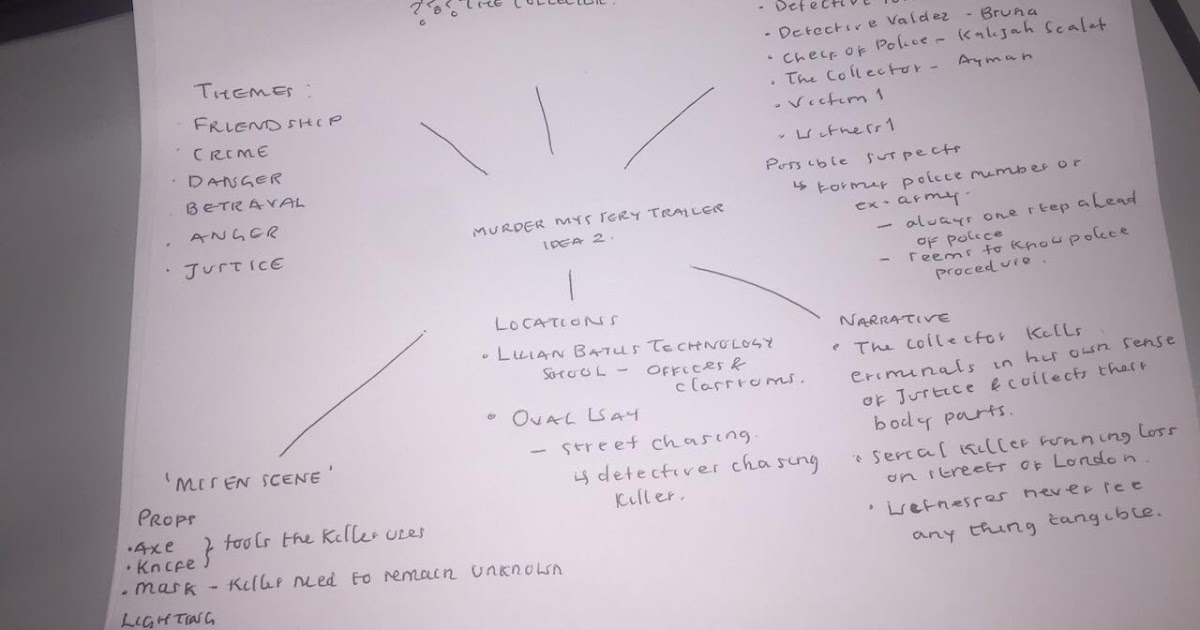 THE COLLECTOR.
THEMES :
· FRIENDSHIP
· CRIME
· DANGER
BETRAYAL
· ANGER
· JUSTICE
· Detective
· Detective Valdez - Bruna
· Cheif of Police - Scalet
· The Collector - Ayman
· Victim 1
· Witness 1
Possible suspects
↳ Former police number or
ex-army.
- always one step ahead
of police
- seems to know police
procedure.
MURDER MYSTERY TRAILER
IDEA 2.
LOCATIONS
• LILIAN BAYLIS TECHNOLOGY
SCHOOL - OFFICES &
classroms.
• OVAL
- street chasing.
detectives chasing
killer.
NARRATIVE
• The collector kills
criminals in his own sense
of Justice & collects their
body parts.
• serial killer running loss
on streets of London.
• Witnesses never see
any thing tangible.
'MIS EN SCENE'
PROPS
• Axe } tools the killer uses
• Knife
• mask - killer need to remain unknown
LIGHTING